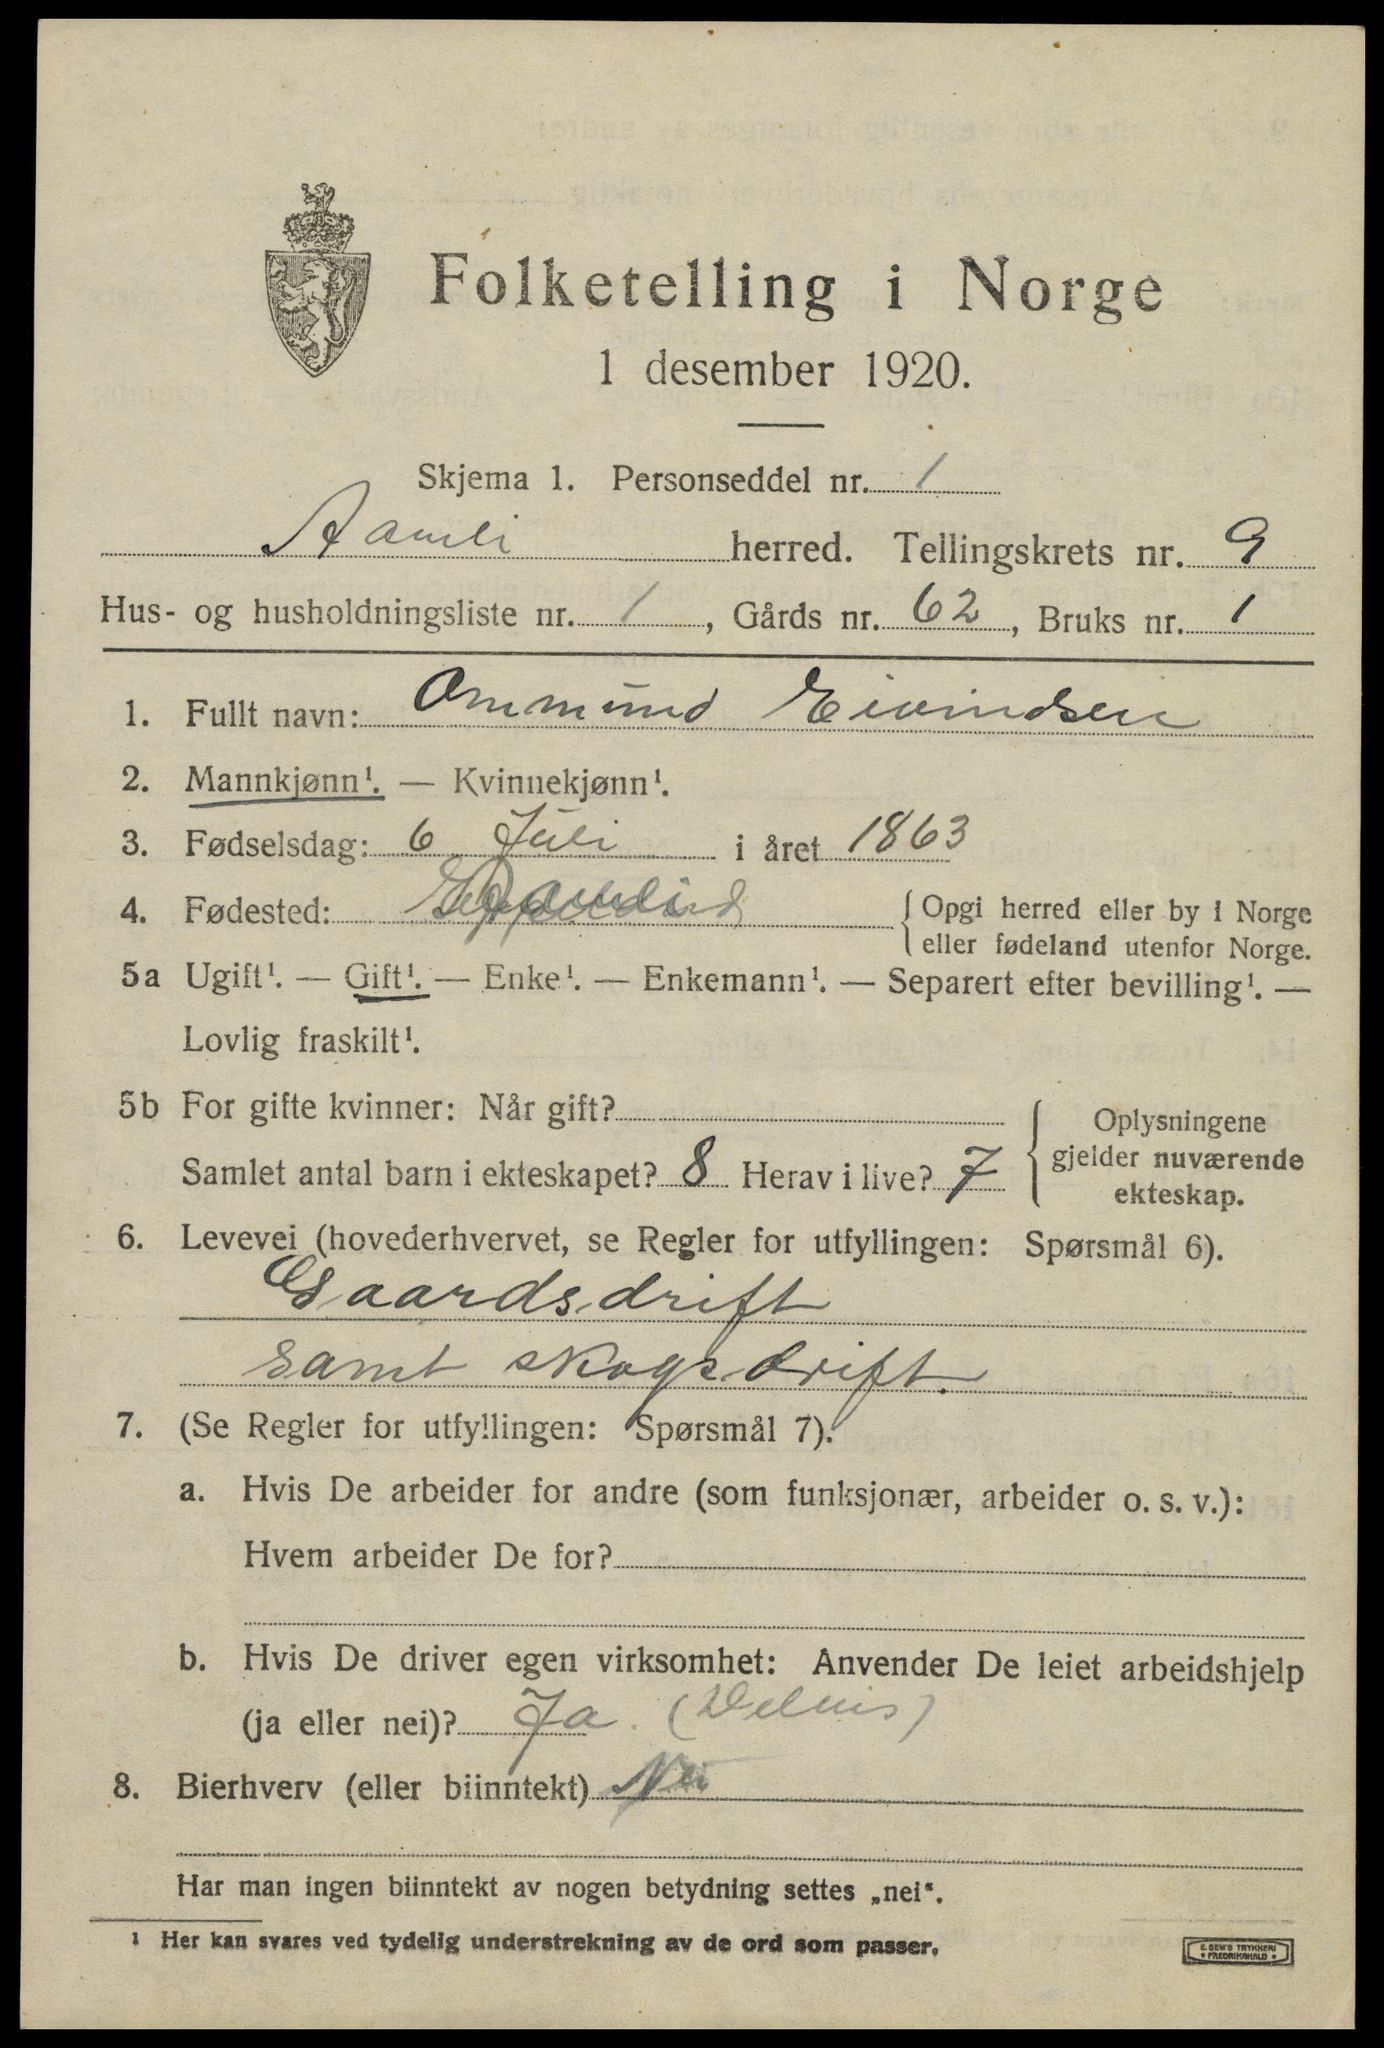 Folketelling i Norge
1 desember 1920.
Skjema 1. Personseddel nr. 1
Aamli herred. Tellingskrets nr. 9
Hus- og husholdningsliste nr. 1, Gårds nr. 62, Bruks nr. 1
1. Fullt navn: Ommund Eivindsen
2. Mannkjønn¹. — Kvinnekjønn¹.
3. Fødselsdag: 6 Juli i året 1863
4. Fødested: Aamli {Opgi herred eller by i Norge
eller fødeland utenfor Norge.
5a Ugift¹. — Gift¹. — Enke¹. — Enkemann¹. — Separert efter bevilling¹. —
Lovlig fraskilt¹.
5b For gifte kvinner: Når gift?
Samlet antal barn i ekteskapet? 8 Herav i live? 7
Oplysningene
gjelder nuværende
ekteskap.
6. Levevei (hovederhvervet, se Regler for utfyllingen: Spørsmål 6).
Gaardsdrift
samt skogsdrift.
7. (Se Regler for utfyllingen: Spørsmål 7).
a. Hvis De arbeider for andre (som funksjonær, arbeider o. s. v.):
Hvem arbeider De for?
b. Hvis De driver egen virksomhet: Anvender De leiet arbeidshjelp
(ja eller nei)? Ja. (Delvis)
8. Bierhverv (eller biinntekt) Nei
Har man ingen biinntekt av nogen betydning settes „nei“.
¹ Her kan svares ved tydelig understrekning av de ord som passer.
E. SEM'S TRYKKERI
• FREDRIKSHALD •